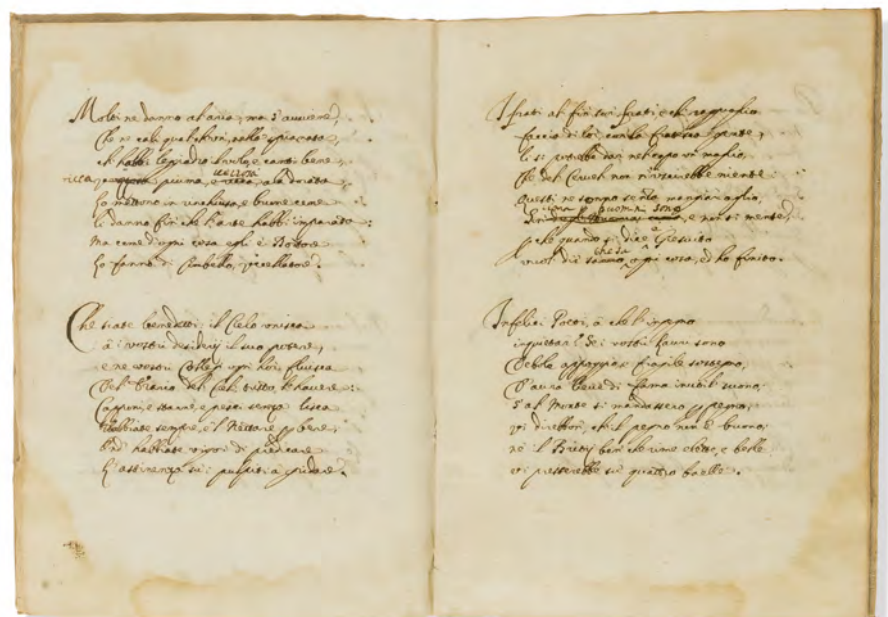 Molti ne danno al aria, ma s'auuiene,
Che ne cali qualch'uno, nella
ch'habbi leggiadro e canti bene,
ricca piuma, e ala dorata,
Lo mettono in rinchiusa, e buone cene
li danno fin che l'arte habbi imparata:
Ma come d'ogni cosa egli è Dottore
Lo fanno di Cimbello, Vccellatore.
Che siate benedetti; il Cielo unisca
à i vostri desiderij il suo potere,
e ne vostri Collegi ogni hor fluisca
Del del Ciel tutto, l'hauere:
Capponi, e starne, e pesci senza lisca
Habbiate sempre, e'l Nettare per bere,
Ond' habbiate vigor di predicare
L'astinenza su i pulpiti, e gridare.
I frati al fin son frati, e ch'
faccio di lor, con la gente,
li si potrebbe dar nel capo un maglio,
Che del Ceruel non n'uscirebbe niente
Questi ne sonno mangian aglio,
huomini sono, e non si mente,
perche quando si dice è Gesuita
vuol dir che sa ogni cosa, ed hò finito.
Infelici Poeti, à che l'ingegno
inquietar? dei vostri lauri sono
Debole appoggio, e fragile sostegno,
D'aura lieue di fama inutil suono:
S'al Monte si mandassero per pegno,
vi direbbon, ch'il pegno non è buono;
nè il ben che rime elette, e belle
vi presterebbe sù quattro